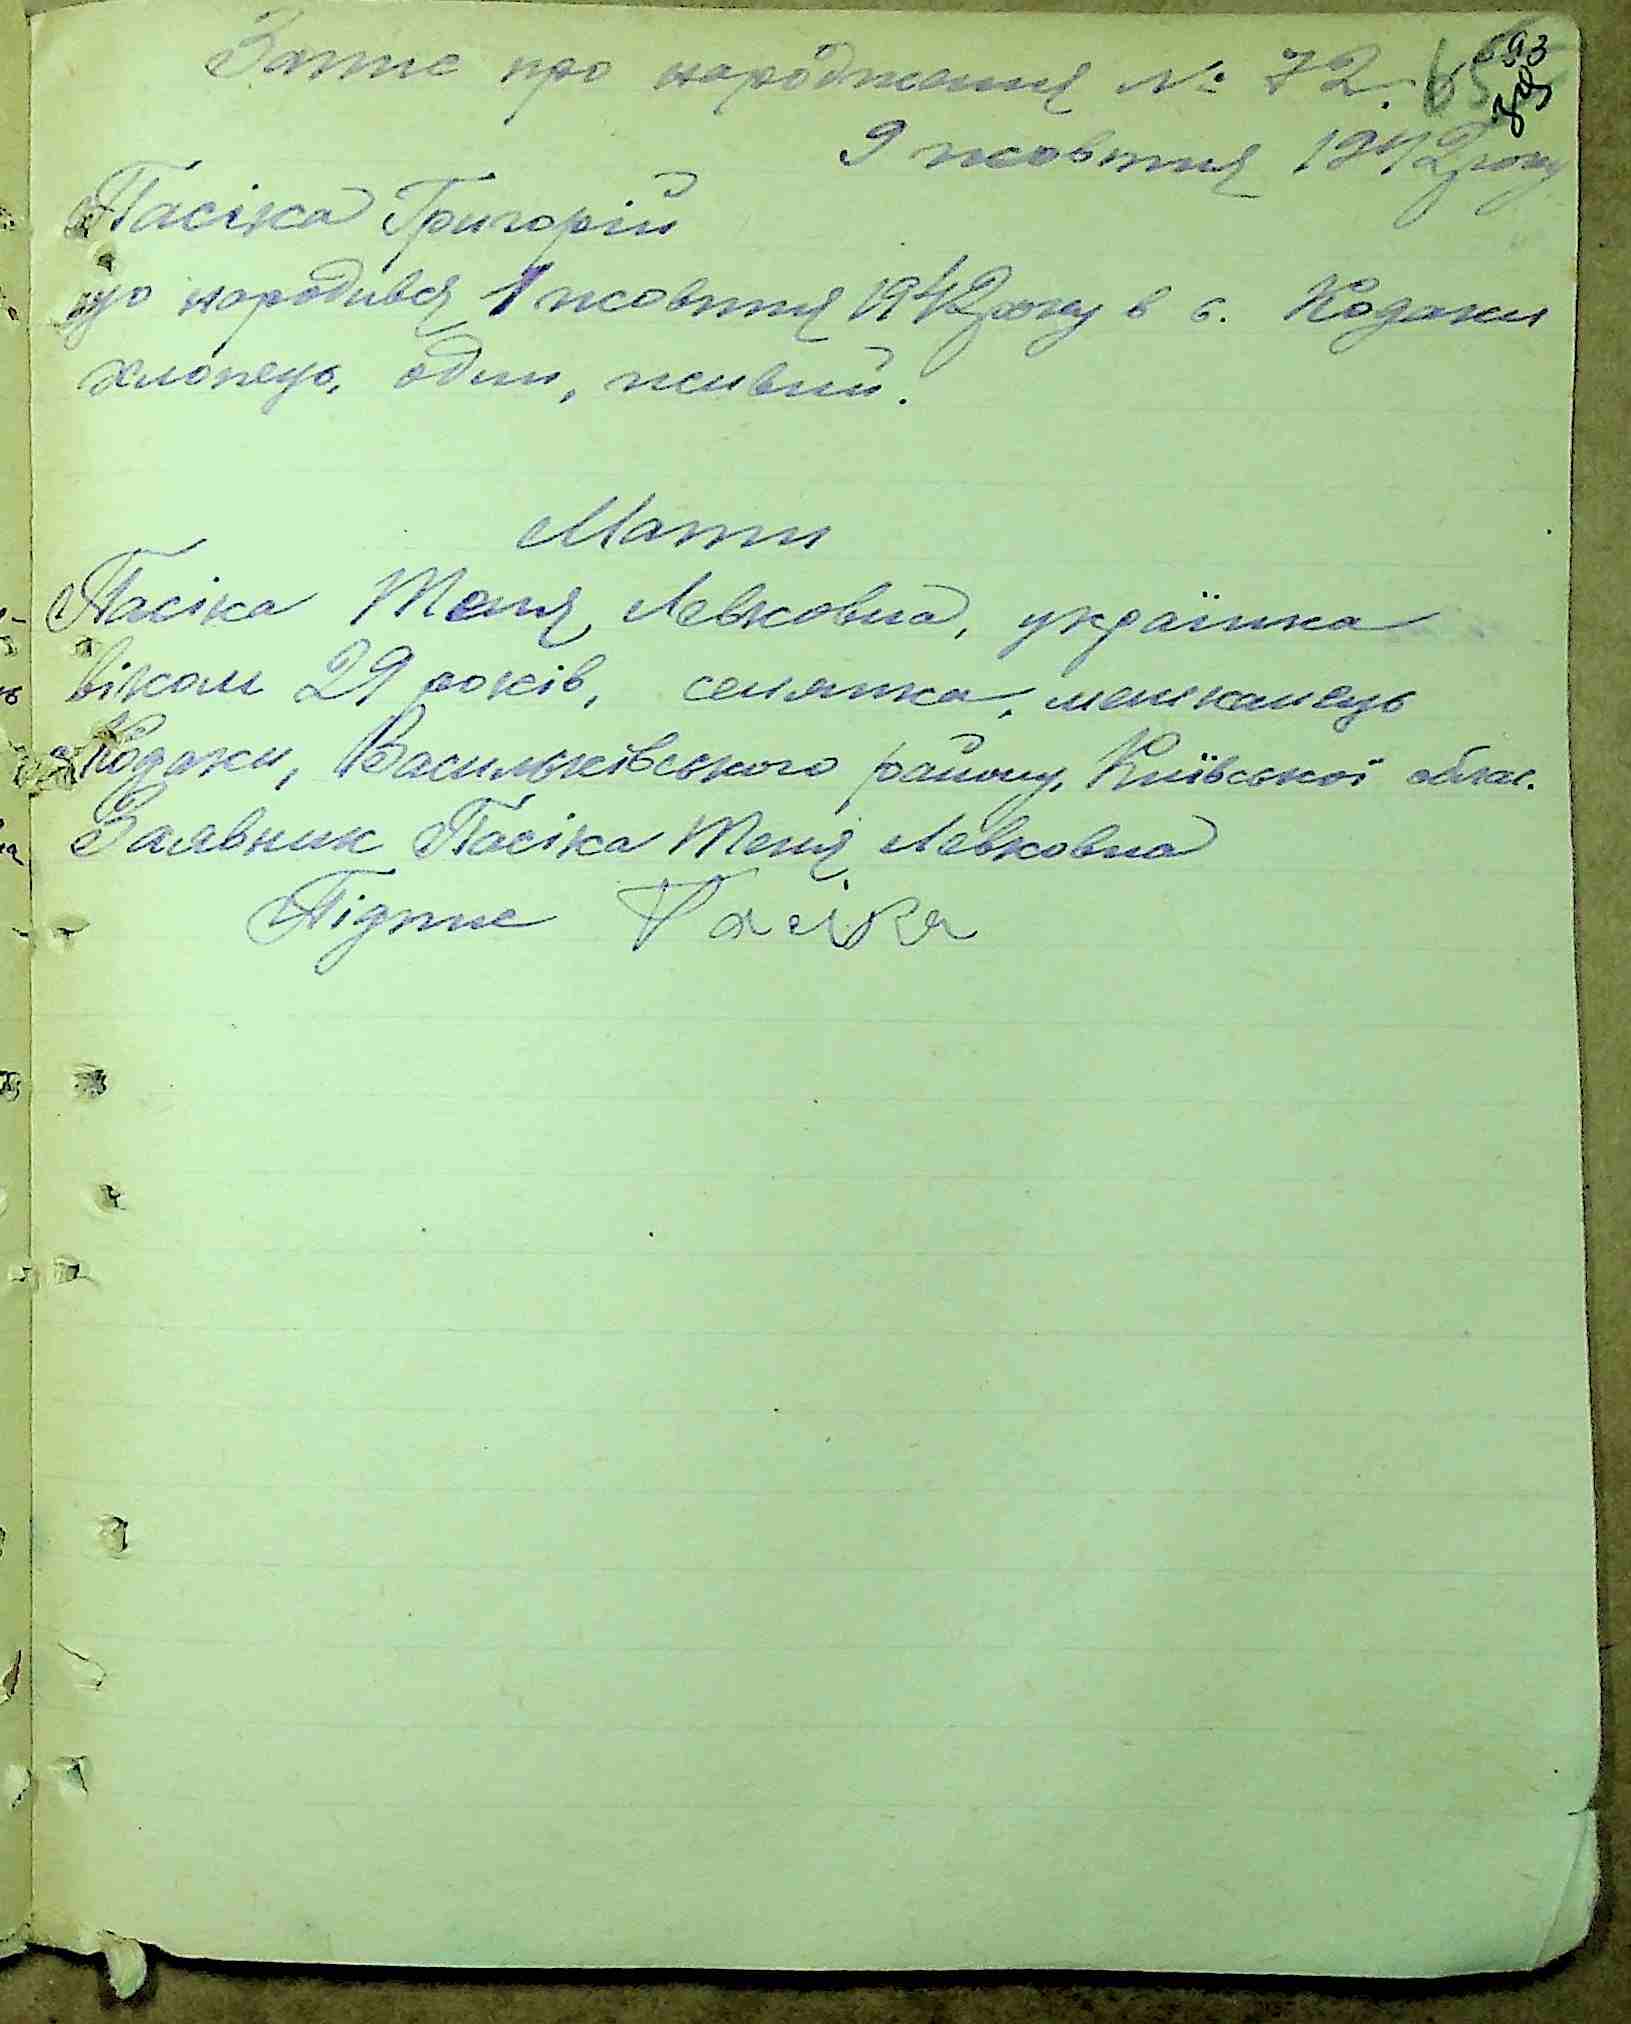 Запис про народження № 72.
9 жовтня 1942 року
Пасіка Григорій
що народився 1 жовтня 1942 року в с. Кодаки
хлопець, один, живий.
Мати
Пасіка Теня Левковна, українка
віком 29 років, селянка, мешканець
Кодаки, Васильківського району, Київської облас.
Заявник Пасіка Теня Левковна
Підпис Пасіка